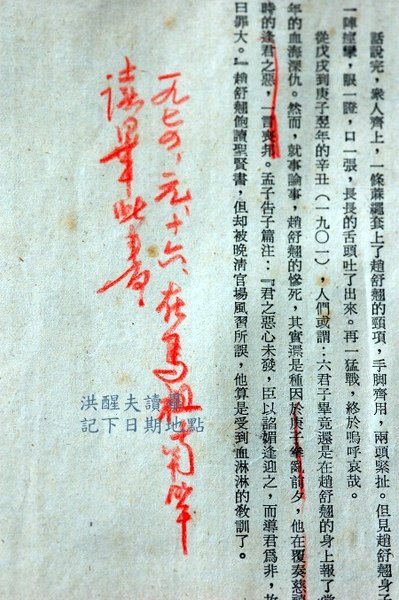 話說完，衆人齊上，一條蔴繩套上了趙舒翹的頸項，手脚齊用，兩頭緊扯。但見趙舒翹身子
一陣痙攣，眼一瞪，口一張，長長的舌頭吐了出來。再一猛戰，終於嗚呼哀哉。
從戊戌到庚子翌年的辛丑（一九〇一），人們或謂：六君子畢竟還是在趙舒翹的身上報了當
年的血海深仇。然而，就事論事，趙舒翹的慘死，其實還是種因於庚子拳亂前夕，他在覆奏慈禧
時的逢君之惡，一言喪邦。孟子告子篇注：『君之惡心未發，臣以諂媚逢迎之，而導君爲非，故
曰罪大。』趙舒翹飽讀聖賢書，但却被晚清官場風習所誤，他算是受到血淋淋的教訓了。
一九七、元、十六在馬祖南竿
讀畢此書
洪醒夫讀
記下日期地點